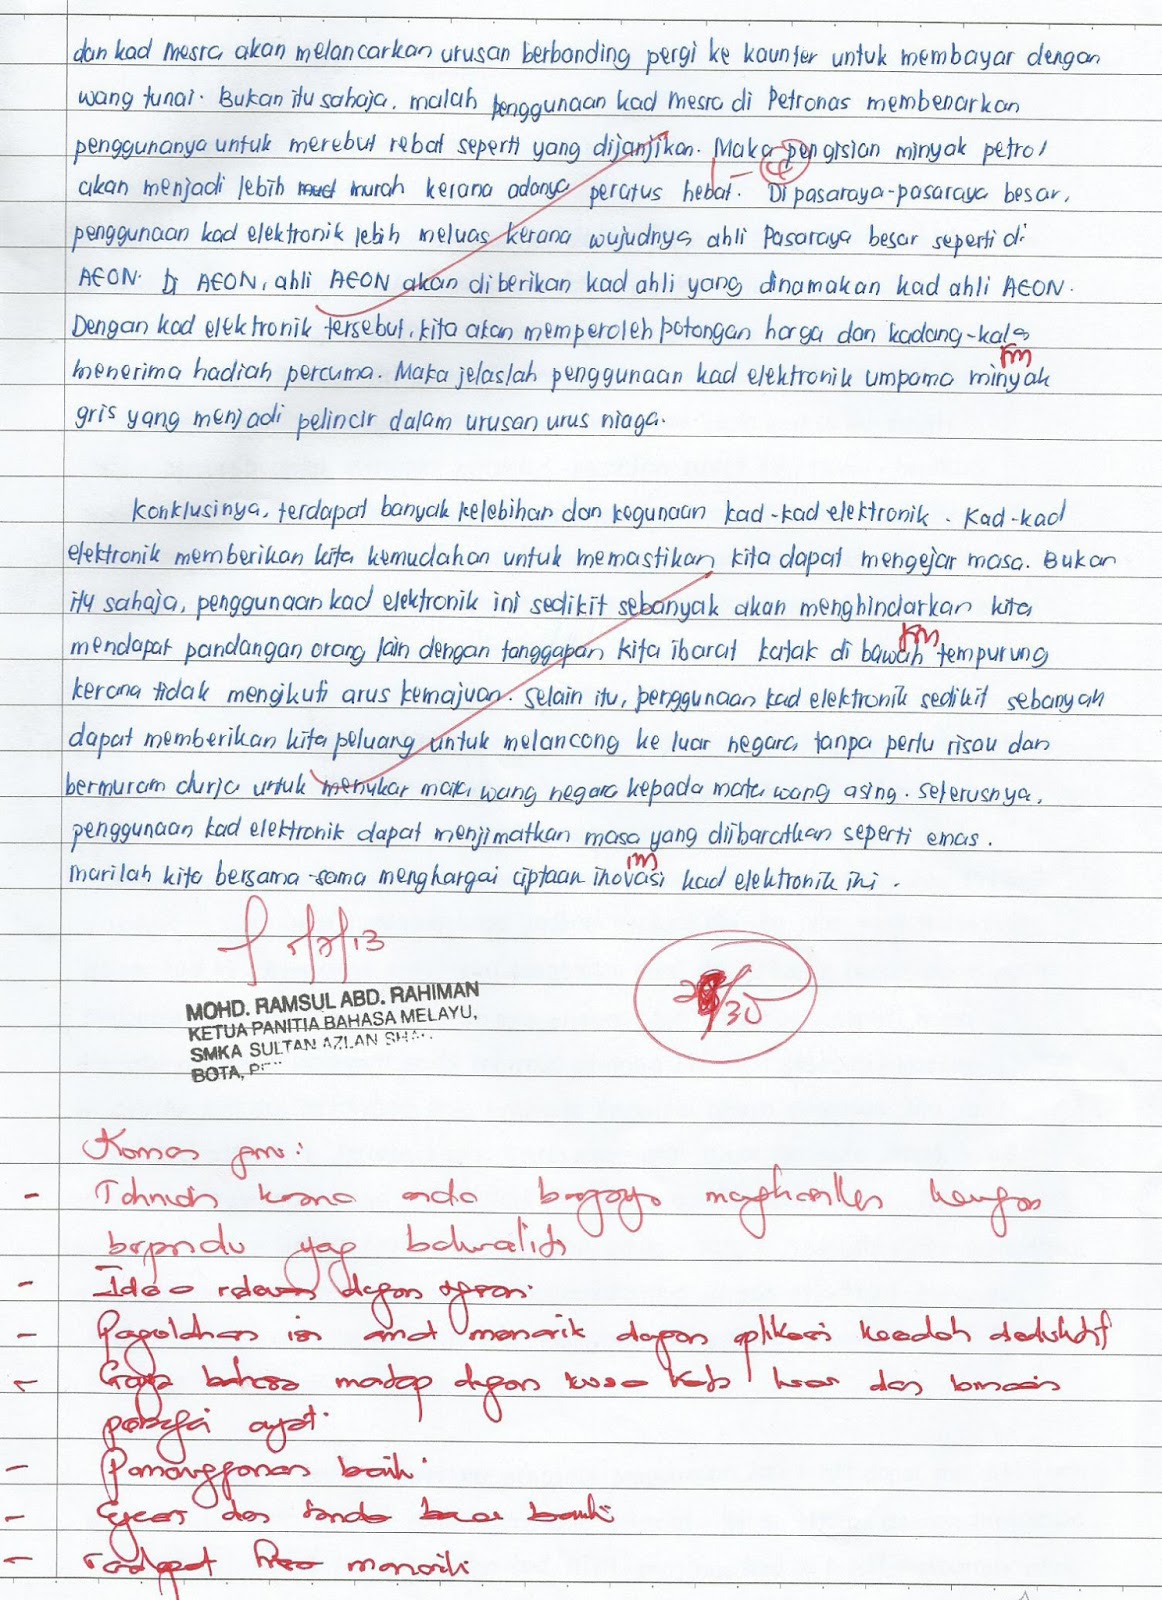 dan kad mesra akan melancarkan urusan berbanding pergi ke kaunter untuk membayar dengan
wang tunai. Bukan itu sahaja, malah penggunaan kad mesra di Petronas membenarkan
penggunanya untuk merebut rebat seperti yang dijanjikan. Maka pengisian minyak petrol
akan menjadi lebih murah kerana adanya peratus hebat. Di pasaraya-pasaraya besar,
penggunaan kad elektronik lebih meluas kerana wujudnya ahli Pasaraya besar seperti di
AEON. Di AEON, ahli AEON akan diberikan kad ahli yang dinamakan kad ahli AEON.
Dengan kad elektronik tersebut, kita akan memperoleh potongan harga dan kadang-kala
menerima hadiah percuma. Maka jelaslah penggunaan kad elektronik umpama minyak
gris yang menjadi pelincir dalam urusan urus niaga.
Konklusinya, terdapat banyak kelebihan dan kegunaan kad-kad elektronik. Kad-kad
elektronik memberikan kita kemudahan untuk memastikan kita dapat mengejar masa. Bukan
itu sahaja, penggunaan kad elektronik ini sedikit sebanyak akan menghindarkan kita
mendapat pandangan orang lain dengan tanggapan kita ibarat katak di bawah tempurung
kerana tidak mengikuti arus kemajuan. Selain itu, penggunaan kad elektronik sedikit sebanyak
dapat memberikan kita peluang untuk melancong ke luar negara tanpa perlu risau dan
bermuram durja untuk menukar mata wang negara kepada mata wang asing. Seterusnya,
penggunaan kad elektronik dapat menjimatkan masa yang diibaratkan seperti emas.
Marilah kita bersama-sama menghargai ciptaan inovasi kad elektronik ini.
MOHD. RAMSUL ABD. RAHIMAN
KETUA PANITIA BAHASA MELAYU,
SMKA SULTAN AZLAN
BOTA,
/30
Komen
Tahniah kerana anda menghasilkan karangan
berpandu yang berkualiti
Idea relevan dengan
Pengolahan isi amat menarik dengan aplikasi kaedah deduktif
Gaya bahasa mantap dengan kosa kata luas dan
pelbagai ayat.
Pemerenggenan baik.
Ejaan dan tanda baca baik
Terdapat menarik